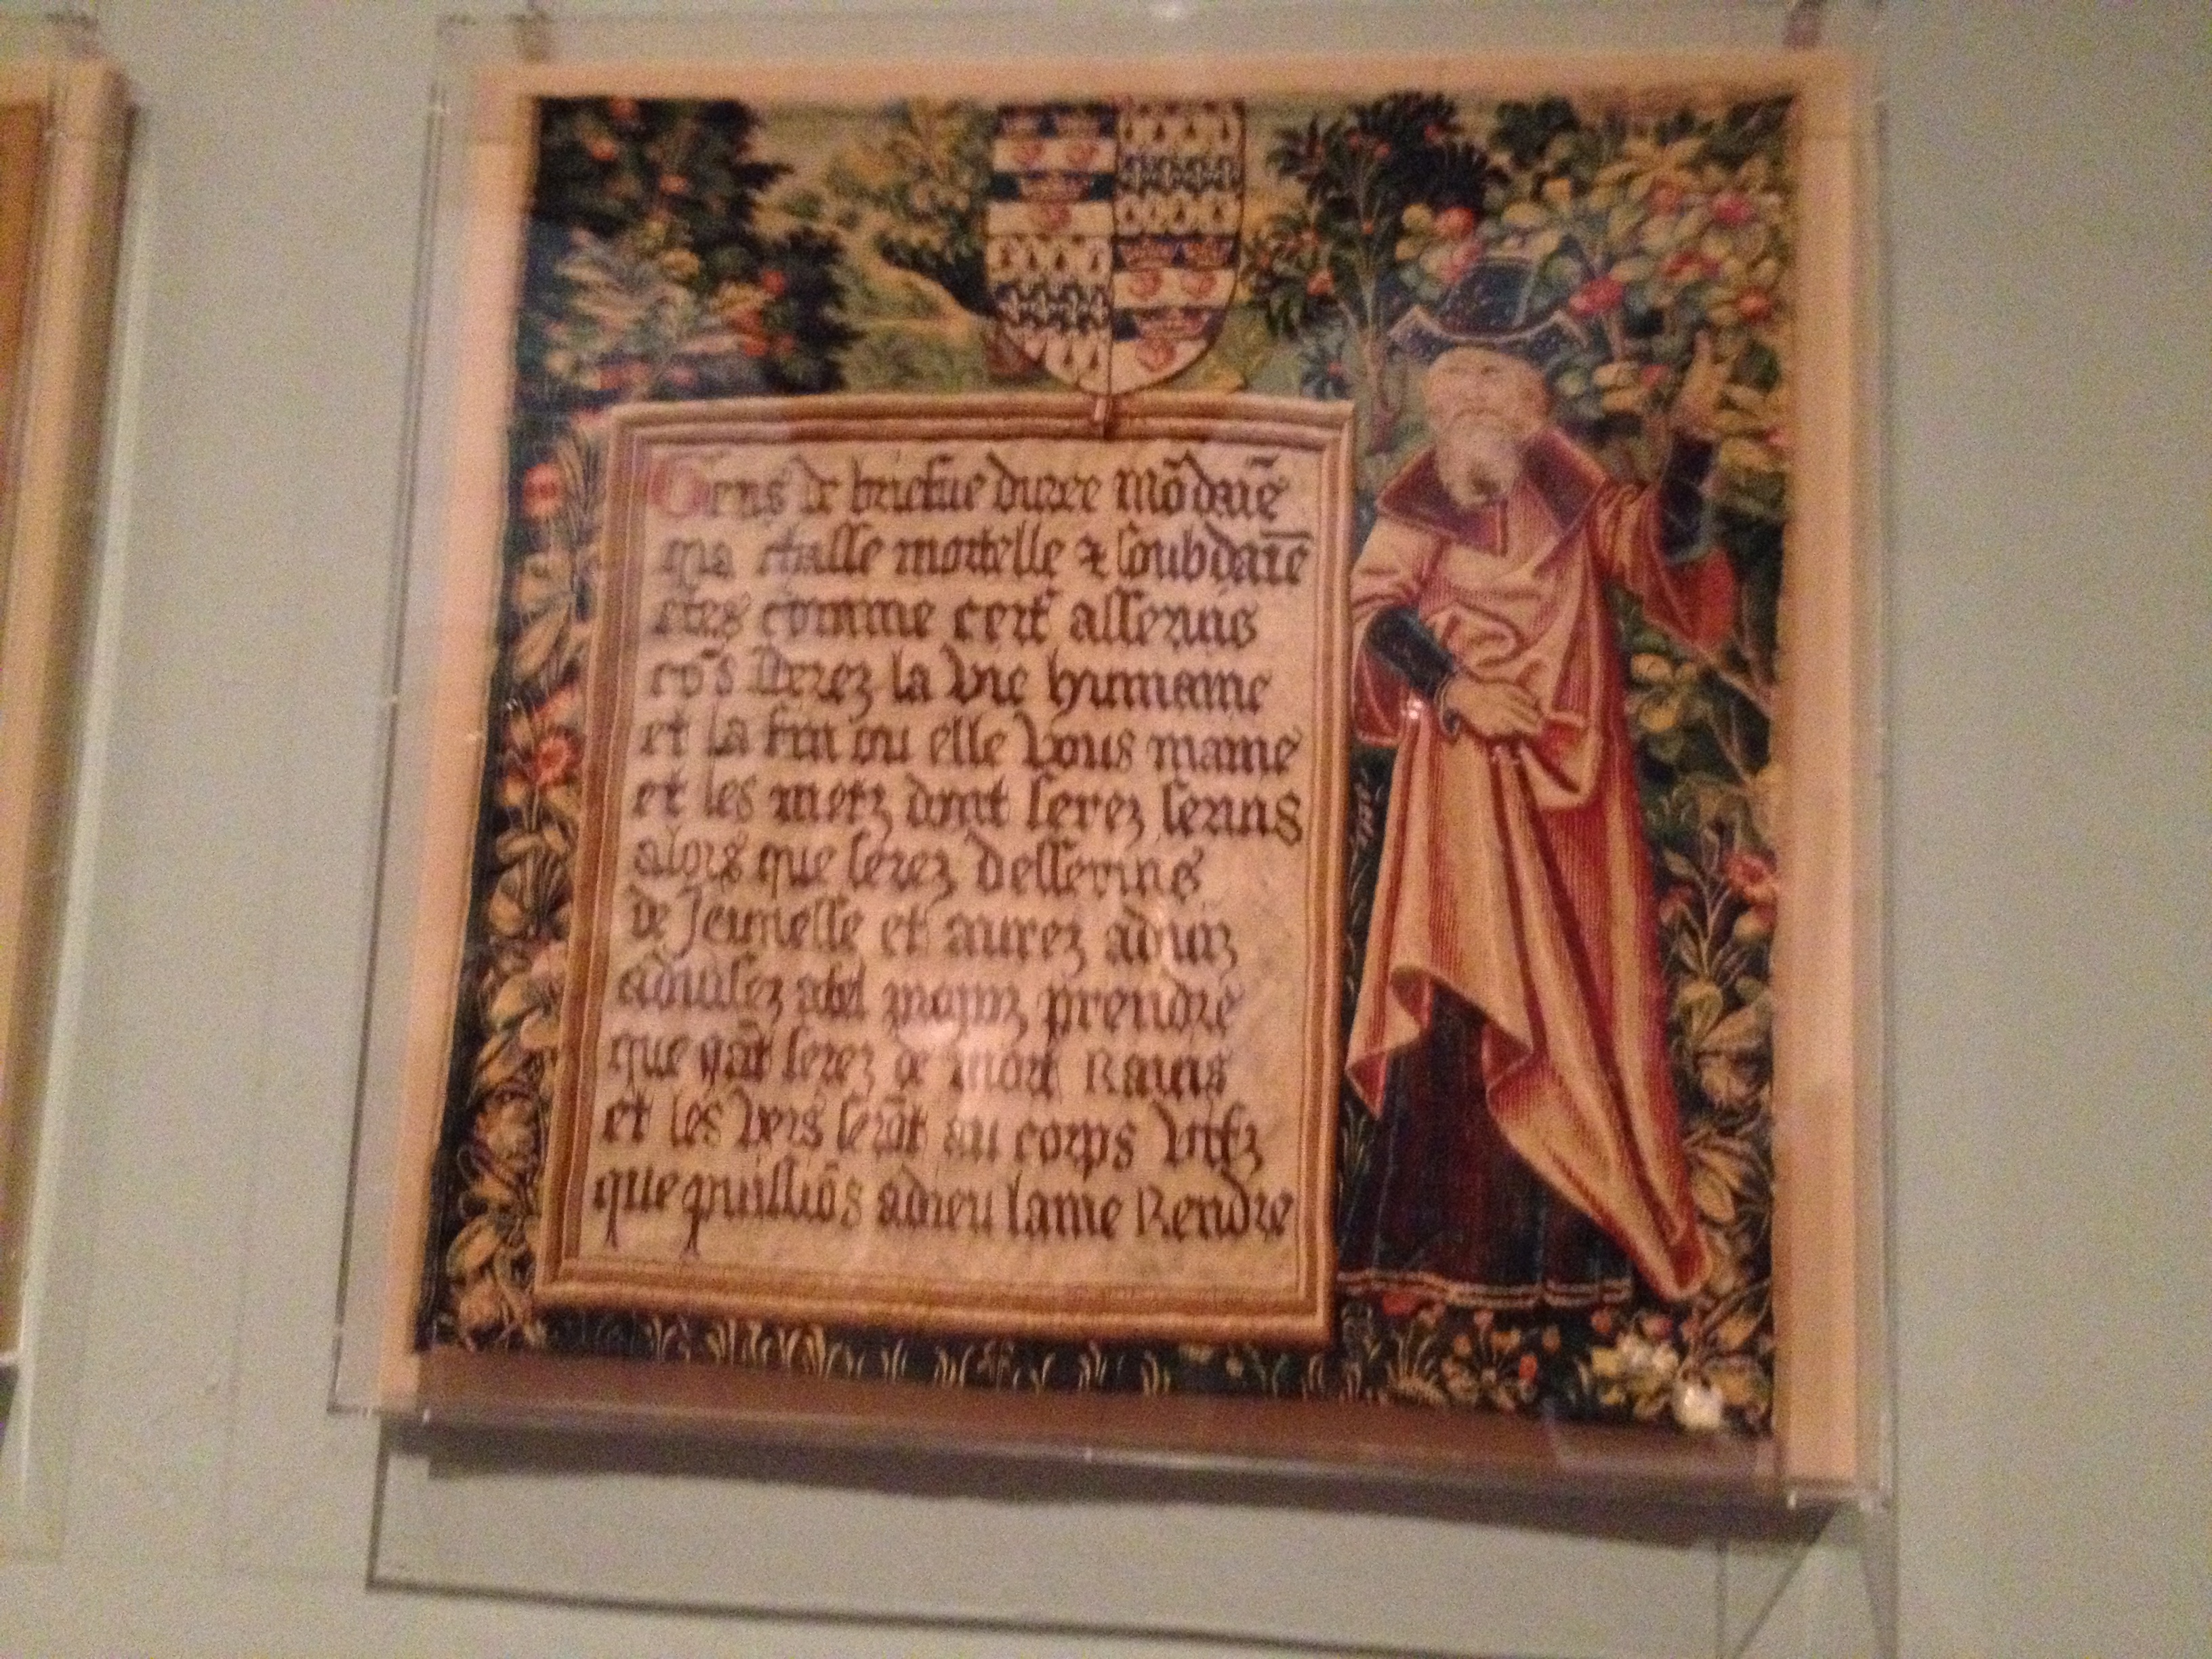 Gens de briefue duree mōdaīe
qua chasse mortelle & soubdaīe
estes comme cerf asseruis
cōs derez la vie humaine
et la fin ou elle vous maine
et les metz dont serez seruis
alors que serez desseruis
de Jeunesse et aurez
que qāt serez de mort Rauis
et les vers serōt au corps vifz
que puissiōs adieu lame Rendre